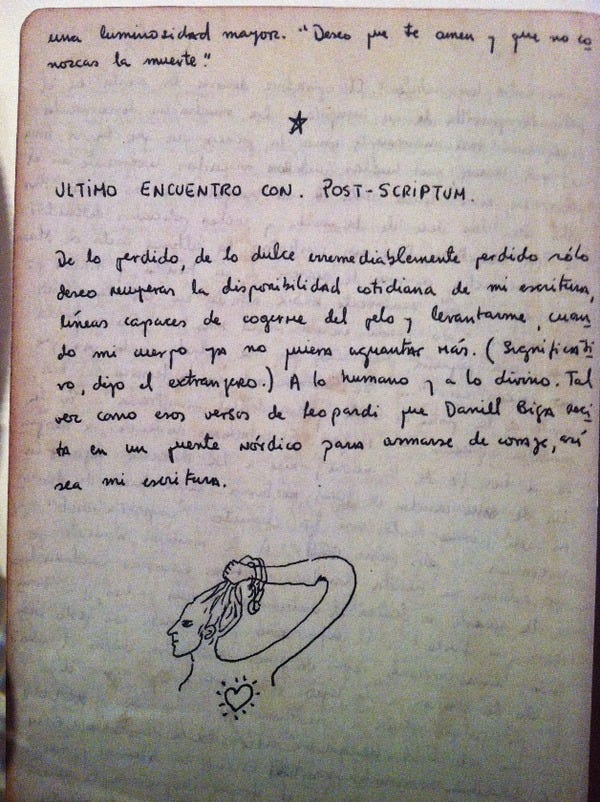 una luminosidad mayor. "Deseo que te amen y que no co
nozcas la muerte."
ULTIMO ENCUENTRO CON. POST-SCRIPTUM.
De lo perdido, de lo dulce irremediablemente perdido sólo
deseo recuperar la disponibilidad cotidiana de mi escritura,
líneas capaces de cogerme del pelo y levantarme, cuan
do mi cuerpo ya no quiera aguantar más. (Significati
vo, dijo el extranjero.) A lo humano y a lo divino. Tal
vez como esos versos de Leopardi que Daniell Biga reci
ta en un puente nórdico para armarse de coraje, así
sea mi escritura.